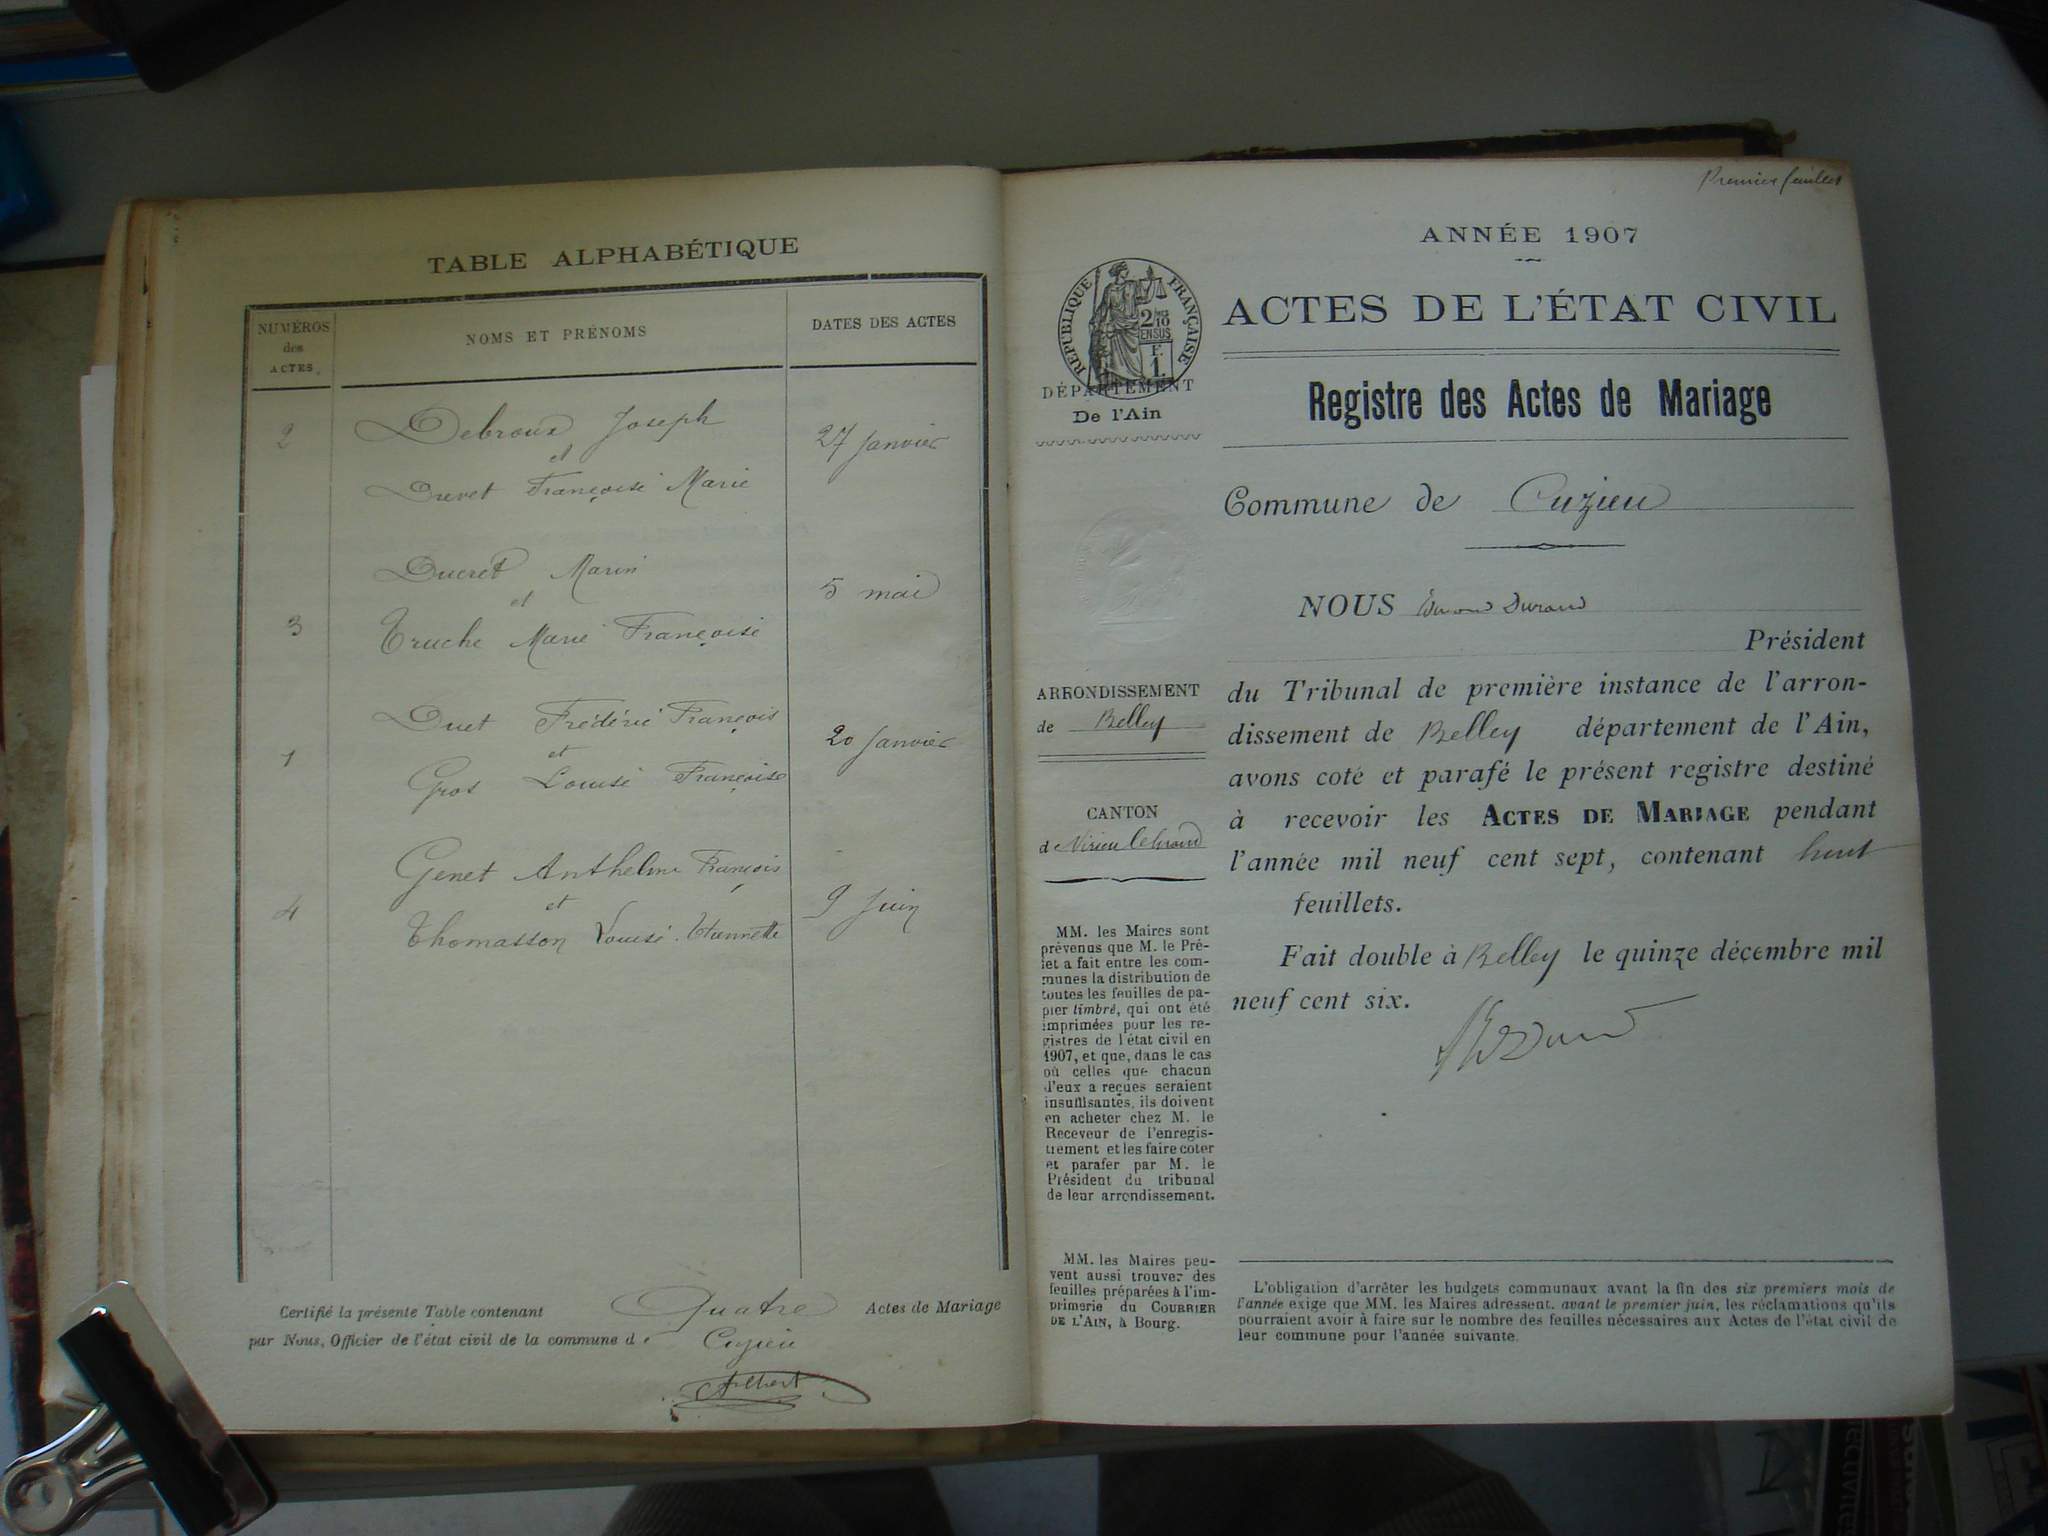 TABLE ALPHABÉTIQUE
NUMÉROS
des
ACTES
NOMS ET PRÉNOMS
DATES DES ACTES
2
Debroux Joseph
27 Janvier
et
Drevet Françoise Marie
Ducret Marin
5 mai
et
3
Truche Marie Françoise
Duet Frédéric François
20 Janvier
et
1
Gros Louise Françoise
Genet Anthelme François
9 Juin
et
4
Thomasson Louise Etiennette
Certifié la présente Table contenant Quatre Actes de Mariage
par Nous, Officier de l'état civil de la commune de Cuzieu
Albert
Premier feuillet
ANNÉE 1907
ACTES DE L'ÉTAT CIVIL
RÉPUBLIQUE FRANÇAISE
2/10
EN SUS
F.
1.
DÉPARTEMENT
De l'Ain
Registre des Actes de Mariage
Commune de Cuzieu
NOUS Edmond Durand
Président
ARRONDISSEMENT
de Belley
CANTON
de Virieu le Grand
du Tribunal de première instance de l'arron-
dissement de Belley département de l'Ain,
avons coté et parafé le présent registre destiné
à recevoir les ACTES DE MARIAGE pendant
l'année mil neuf cent sept, contenant huit
feuillets.
Fait double à Belley le quinze décembre mil
neuf cent six.
MM. les Maires sont
prévenus que M. le Pré-
fet a fait entre les com-
munes la distribution de
toutes les feuilles de pa-
pier timbré, qui ont été
imprimées pour les re-
gistres de l'état civil en
1907, et que, dans le cas
où celles que chacun
d'eux a reçues seraient
insuffisantes, ils doivent
en acheter chez M. le
Receveur de l'enregis-
trement et les faire coter
et parafer par M. le
Président du tribunal
de leur arrondissement.
MM. les Maires peu-
vent aussi trouver des
feuilles préparées à l'im-
primerie du COURRIER
DE L'AIN, à Bourg.
L'obligation d'arrêter les budgets communaux avant la fin des six premiers mois de
l'année exige que MM. les Maires adressent, avant le premier juin, les réclamations qu'ils
pourraient avoir à faire sur le nombre des feuilles nécessaires aux Actes de l'état civil de
leur commune pour l'année suivante.